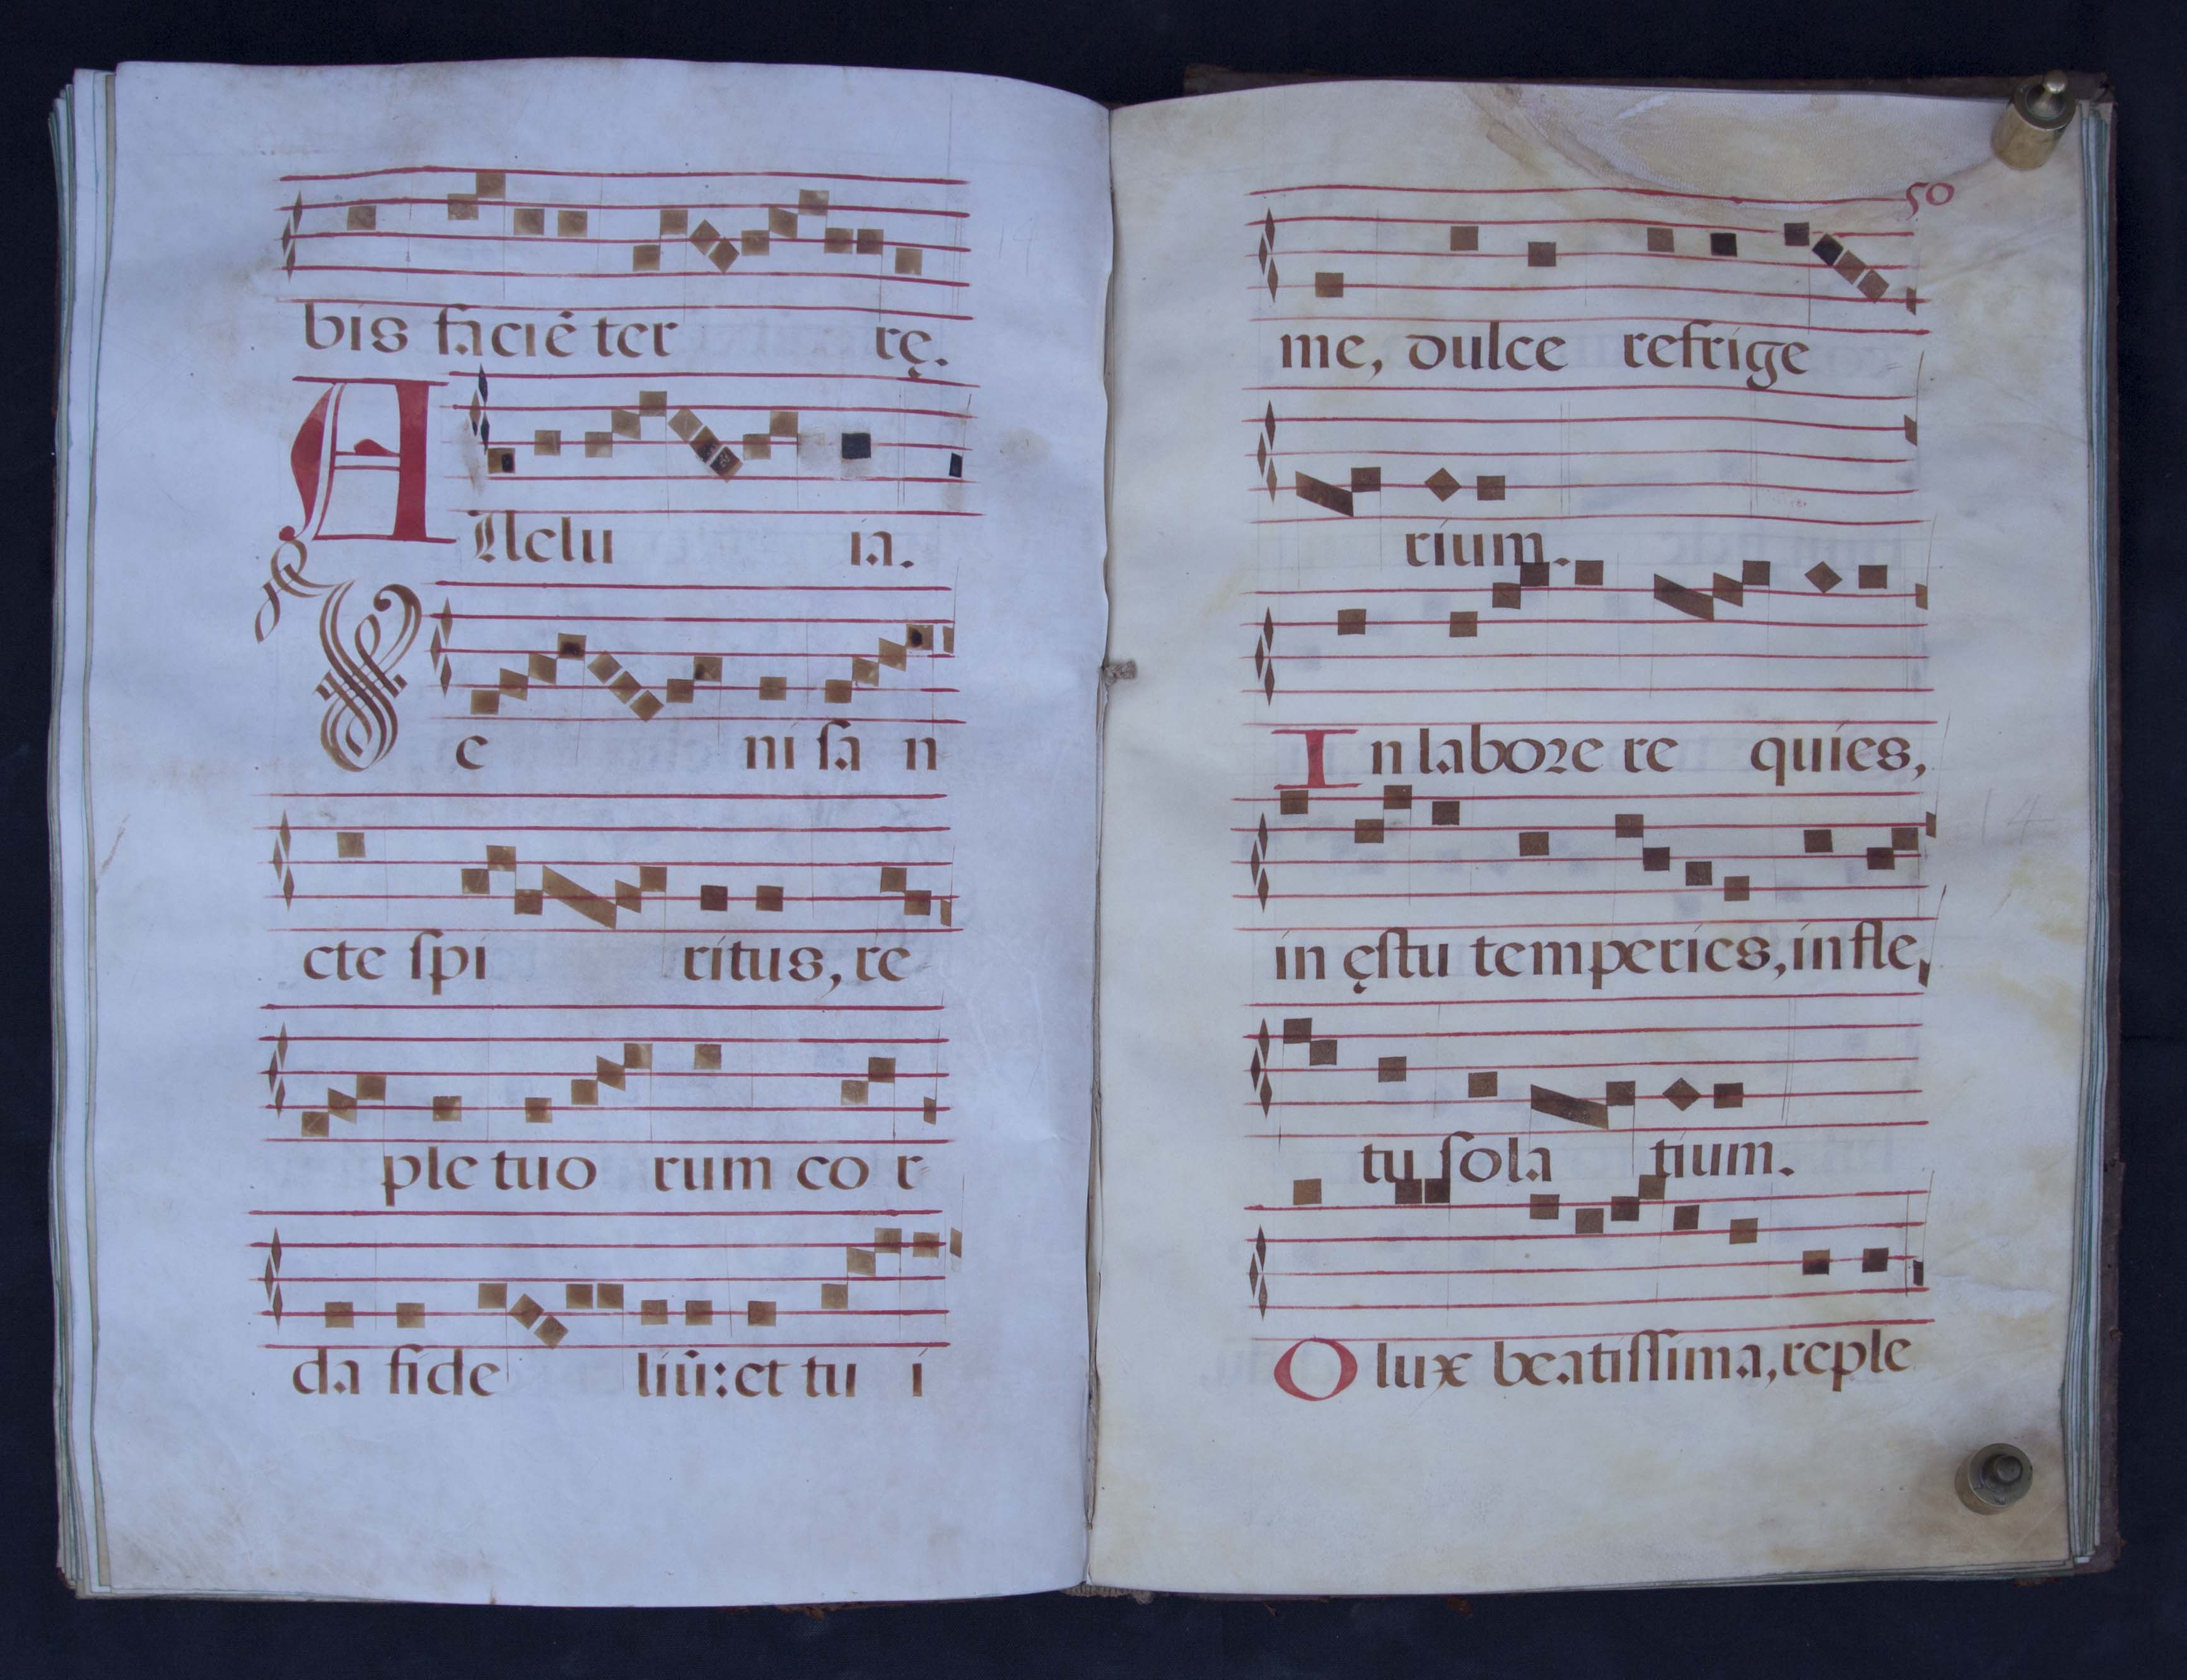 bis facié ter re̜.
Allelu ia.
Ve ni ſa n
cte ſpi ritus, re
ple tuo rum co r
da fide liũ: et tu i
50
me, dulce refrige
rium.
In labore re quies,
in e̜ſtu temperies, in fle,
tu ſola tium.
O lux beatiſſima, reple